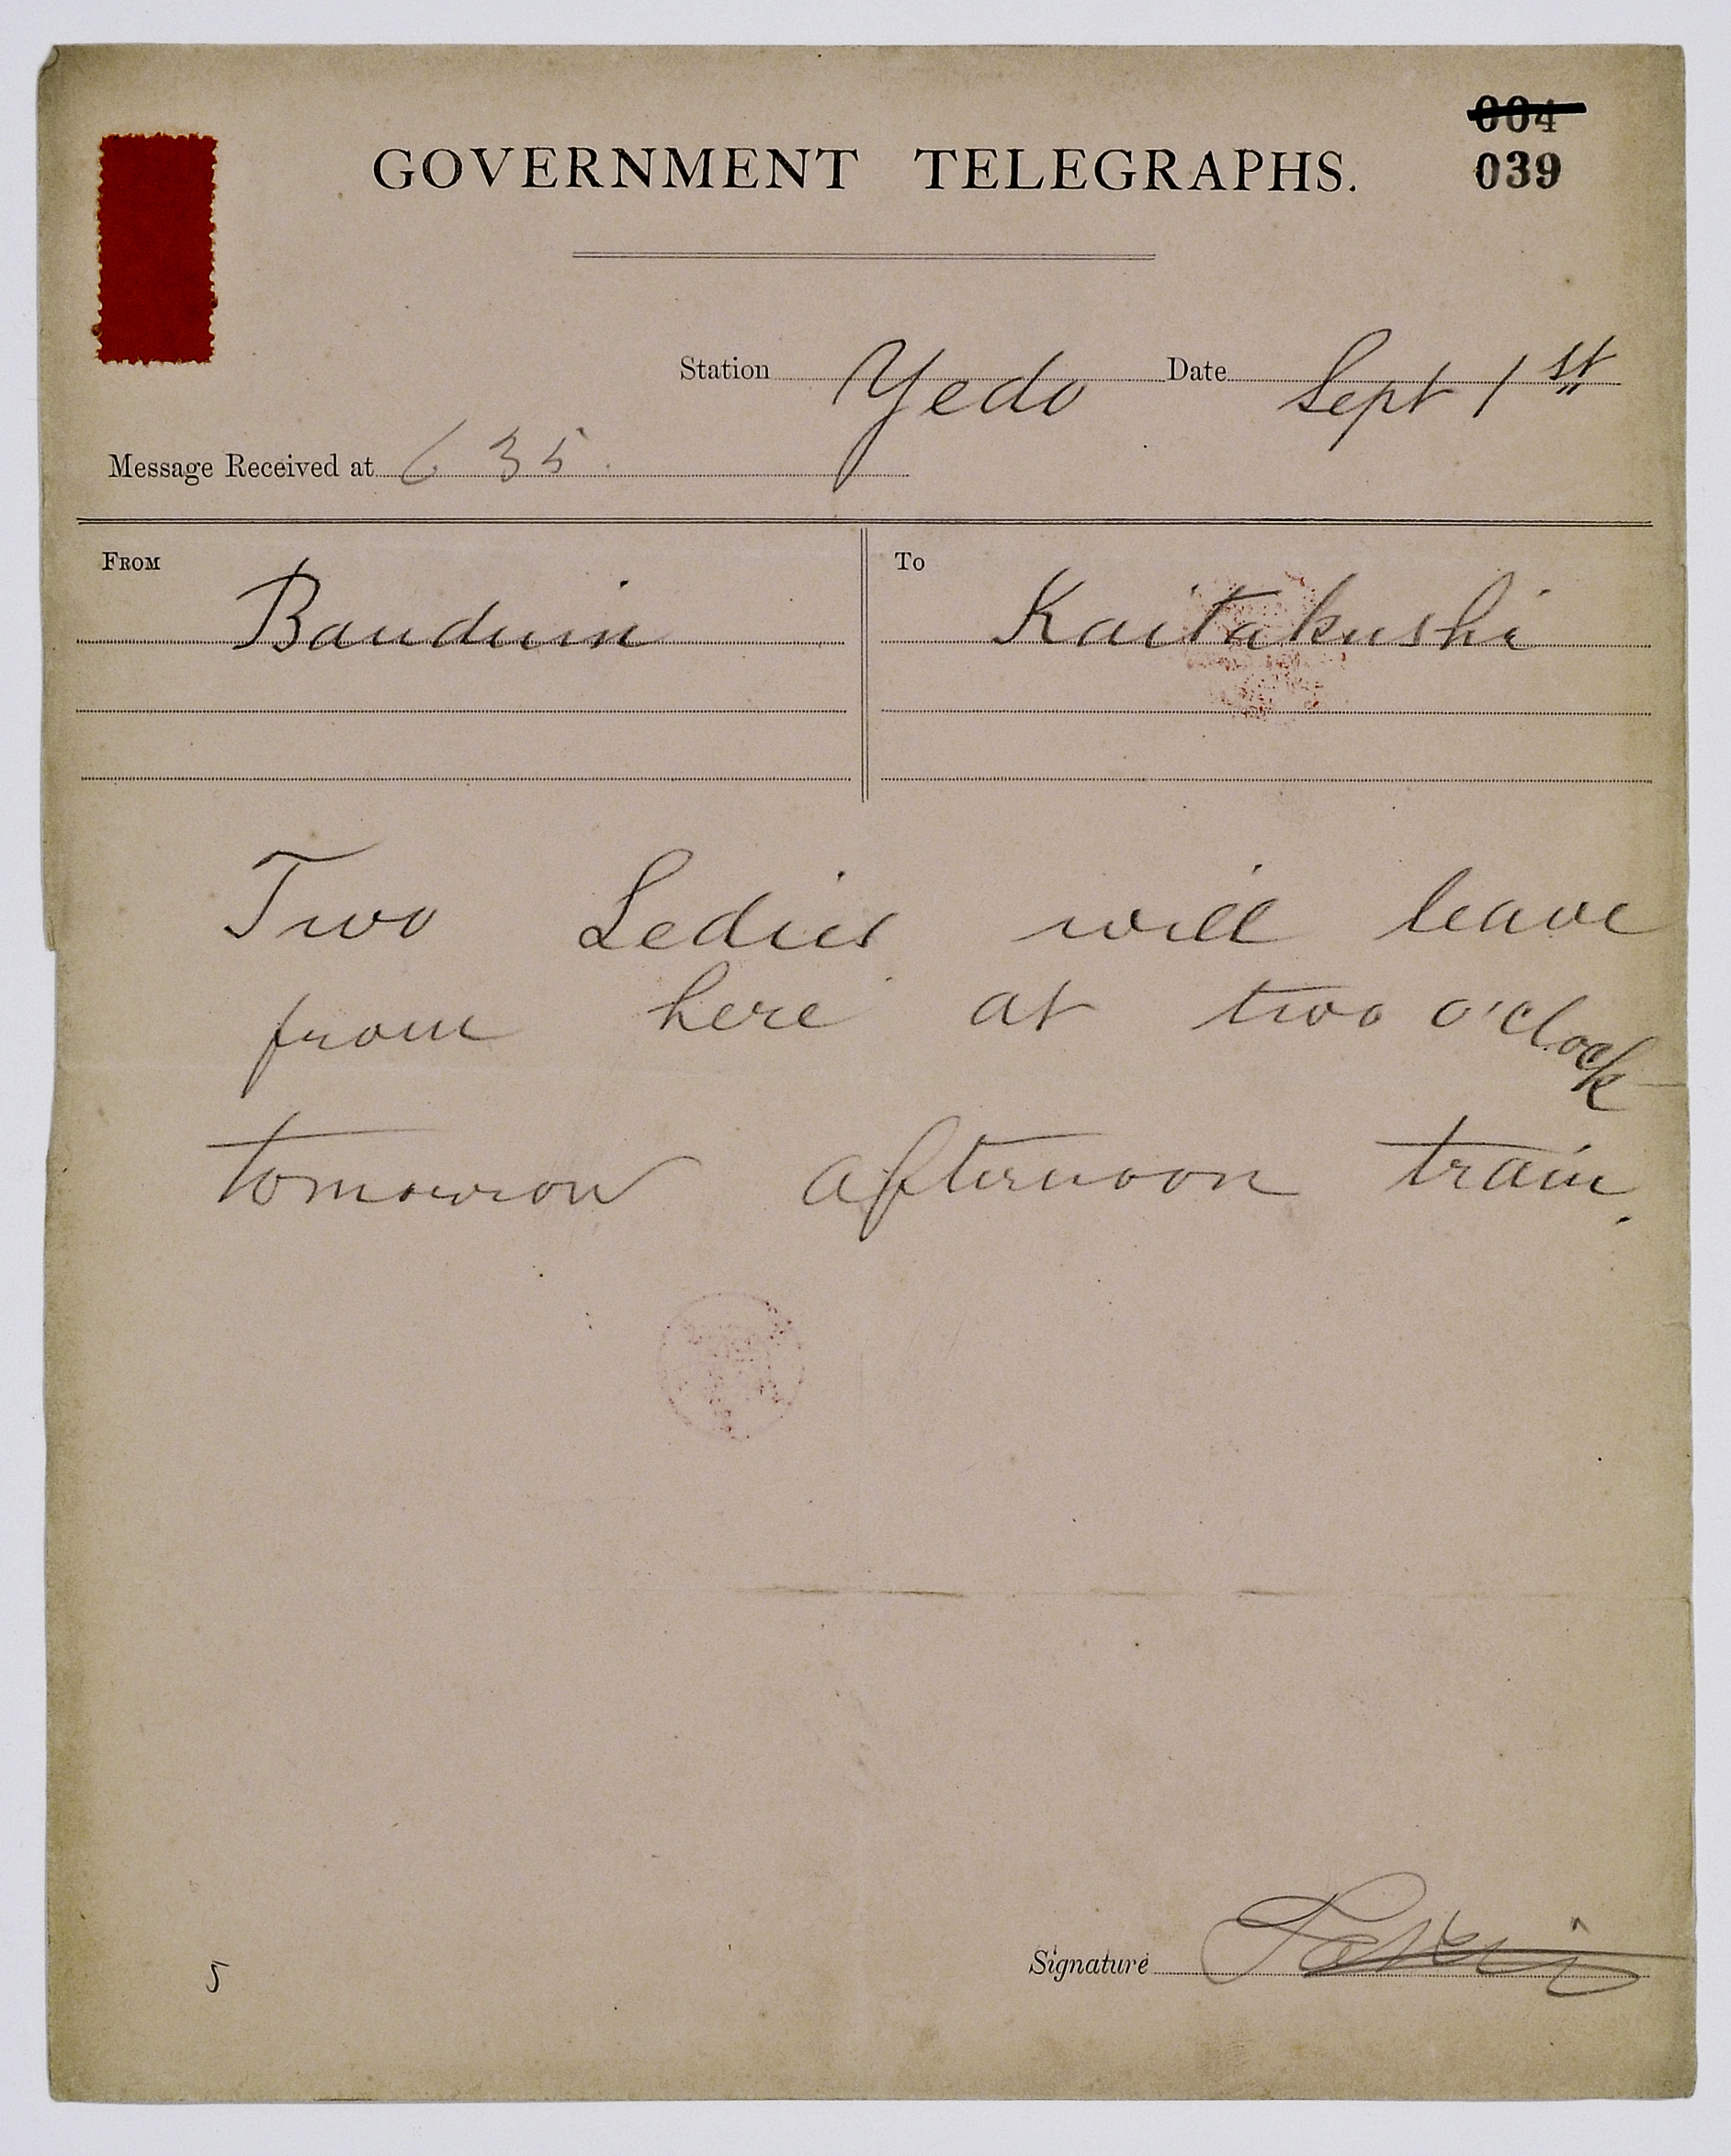 004
GOVERNMENT TELEGRAPHS.
039
Station Yedo Date Sept 1st
Message Received at 6 35.
FROM
To
Bauduin
Kaitakushi
Two Ledies will leave
from here at two o'clock
tomorrow afternoon train.
Signature
5